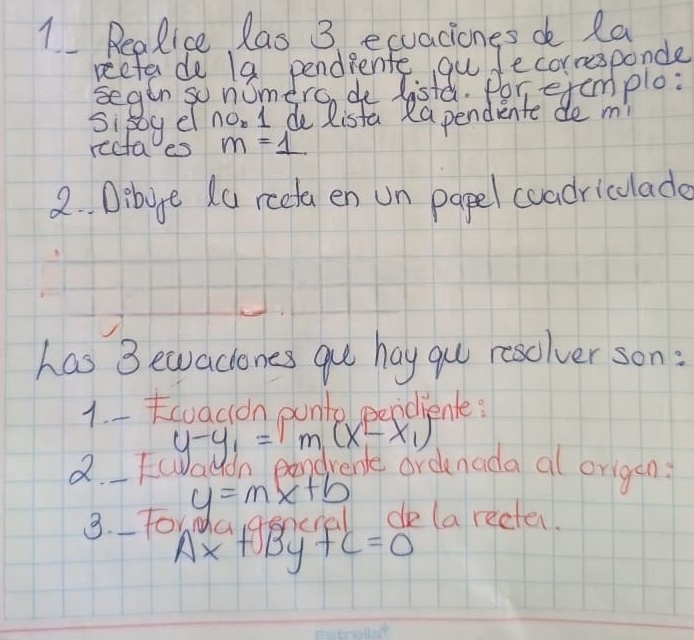 1.- Realice las 3 ecuaciones de la
recta de la pendiente qu le corresponde
según su número de lista. Por ejemplo:
Si soy el no. 1 de lista la pendiente de mi
recta es m = 1
2.- Dibuje la recta en un papel cuadriculado
Las 3 ecuaciones que hay que resolver son:
1.- Ecuación punto pendiente:
y-y₁ = m(x-x₁)
2.- Ecuación pendiente ordenada al origen:
y=mx+b
3.- Forma general de la recta.
Ax+By+C=0
Estrella